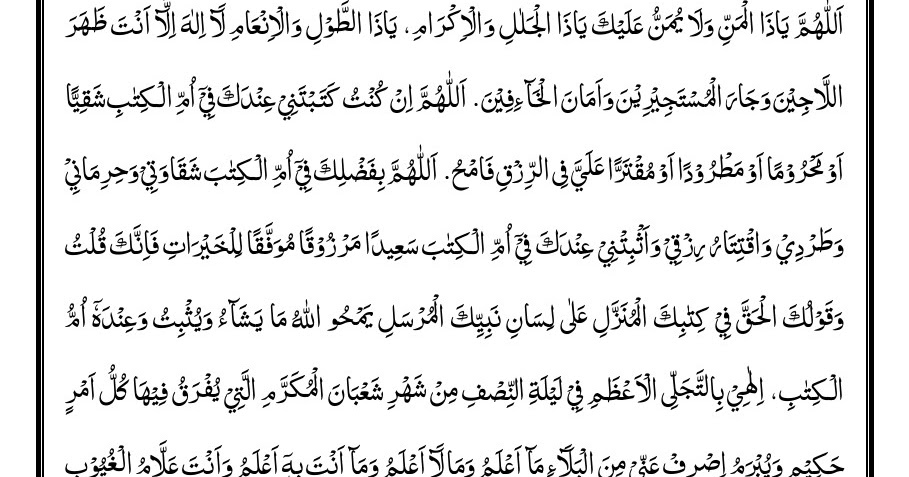 اَللّٰهُمَّ يَاذَا الْمَنِّ وَلَا يُمَنُّ عَلَيْكَ يَاذَا الْجَلٰلِ وَالْاِكْرَامِ، يَاذَا الطَّوْلِ وَالْاِنْعَامِ لَآ اِلٰهَ اِلَّآ اَنْتَ ظَهَرَ
اللَّاجِيْنَ وَجَارَ الْمُسْتَجِيْرِيْنَ وَاَمَانَ الْخَآءِفِيْنَ. اَللّٰهُمَّ اِنْ كُنْتُ كَتَبْتَنِيْ عِنْدَكَ فِيْٓ اُمِّ الْكِتٰبِ شَقِيًّا
اَوْ مَحْرُوْمًا اَوْ مَطْرُوْدًا اَوْ مُقْتَرًّا عَلَيَّ فِى الرِّزْقِ فَامْحُ. اَللّٰهُمَّ بِفَضْلِكَ فِيْٓ اُمِّ الْكِتٰبَ شَقَاوَتِيْ وَحِرمَانِيْ
وَطَرْدِيْ وَاقْتِتَارُ رِزْقِيْ وَاَثْبِتْنِيْ عِنْدَكَ فِيْٓ اُمِّ الْكِتٰبَ سَعِيدًا مَرْزُوْقًا مُوَفَّقًا لِلْخَيْرَاتِ فَاِنَّكَ قُلْتُ
وَقَوْلُكَ الْحَقَّ فِيْ كِتٰبِكَ الْمُنَزَّلِ عَلٰى لِسَانِ نَبِيِّكَ الْمُرْسَلِ يَمْحُو اللّٰهُ مَا يَشَآءُ وَيُثْبِتُ وَعِنْدَهٗٓ اُمُّ
الْكِتٰبِ. اِلٰهِيْ بِالتَّجَلِّى الْاَعْظَمِ فِيْ لَيْلَةِ النِّصْفِ مِنْ شَهْرِ شَعْبَانَ الْمُكَرَّمِ الَّتِيْ يُفْرَقُ فِيْهَا كُلُّ اَمْرٍ
حَكِيْمٍ وَيُبْرَمُ اِصْرِفْ عَنِّيْ مِنَ الْبَلَآءِ مَآ اَعْلَمُ وَمَا لَآ اَعْلَمُ وَمَآ اَنْتَ بِهٖٓ اَعْلَمُ وَاَنْتَ عَلَّامُ الْغُيُوْبِ